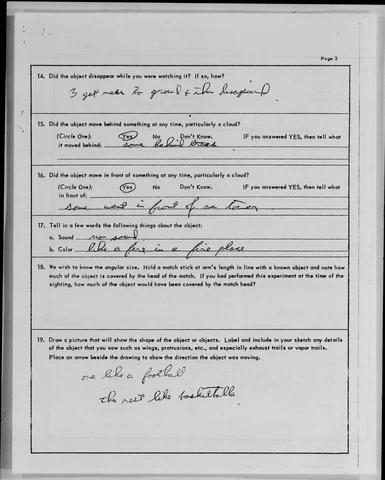 Page 3
14. Did the object disappear while you were watching it? If so, how?
3 got near to ground & then disappeared
15. Did the object move behind something at any time, particularly a cloud?
(Circle One): Yes No Don't Know. IF you answered YES, then tell what
it moved behind: some behind trees
16. Did the object move in front of something at any time, particularly a cloud?
(Circle One): Yes No Don't Know. IF you answered YES, then tell what
in front of:
some went in front of a tower
17. Tell in a few words the following things about the object:
a. Sound no sound
b. Color like a fire in a fire place
18. We wish to know the angular size. Hold a match stick at arm's length in line with a known object and note how
much of the object is covered by the head of the match. If you had performed this experiment at the time of the
sighting, how much of the object would have been covered by the match head?
19. Draw a picture that will show the shape of the object or objects. Label and include in your sketch any details
of the object that you saw such as wings, protrusions, etc., and especially exhaust trails or vapor trails.
Place an arrow beside the drawing to show the direction the object was moving.
one like a football
the rest like basketballs